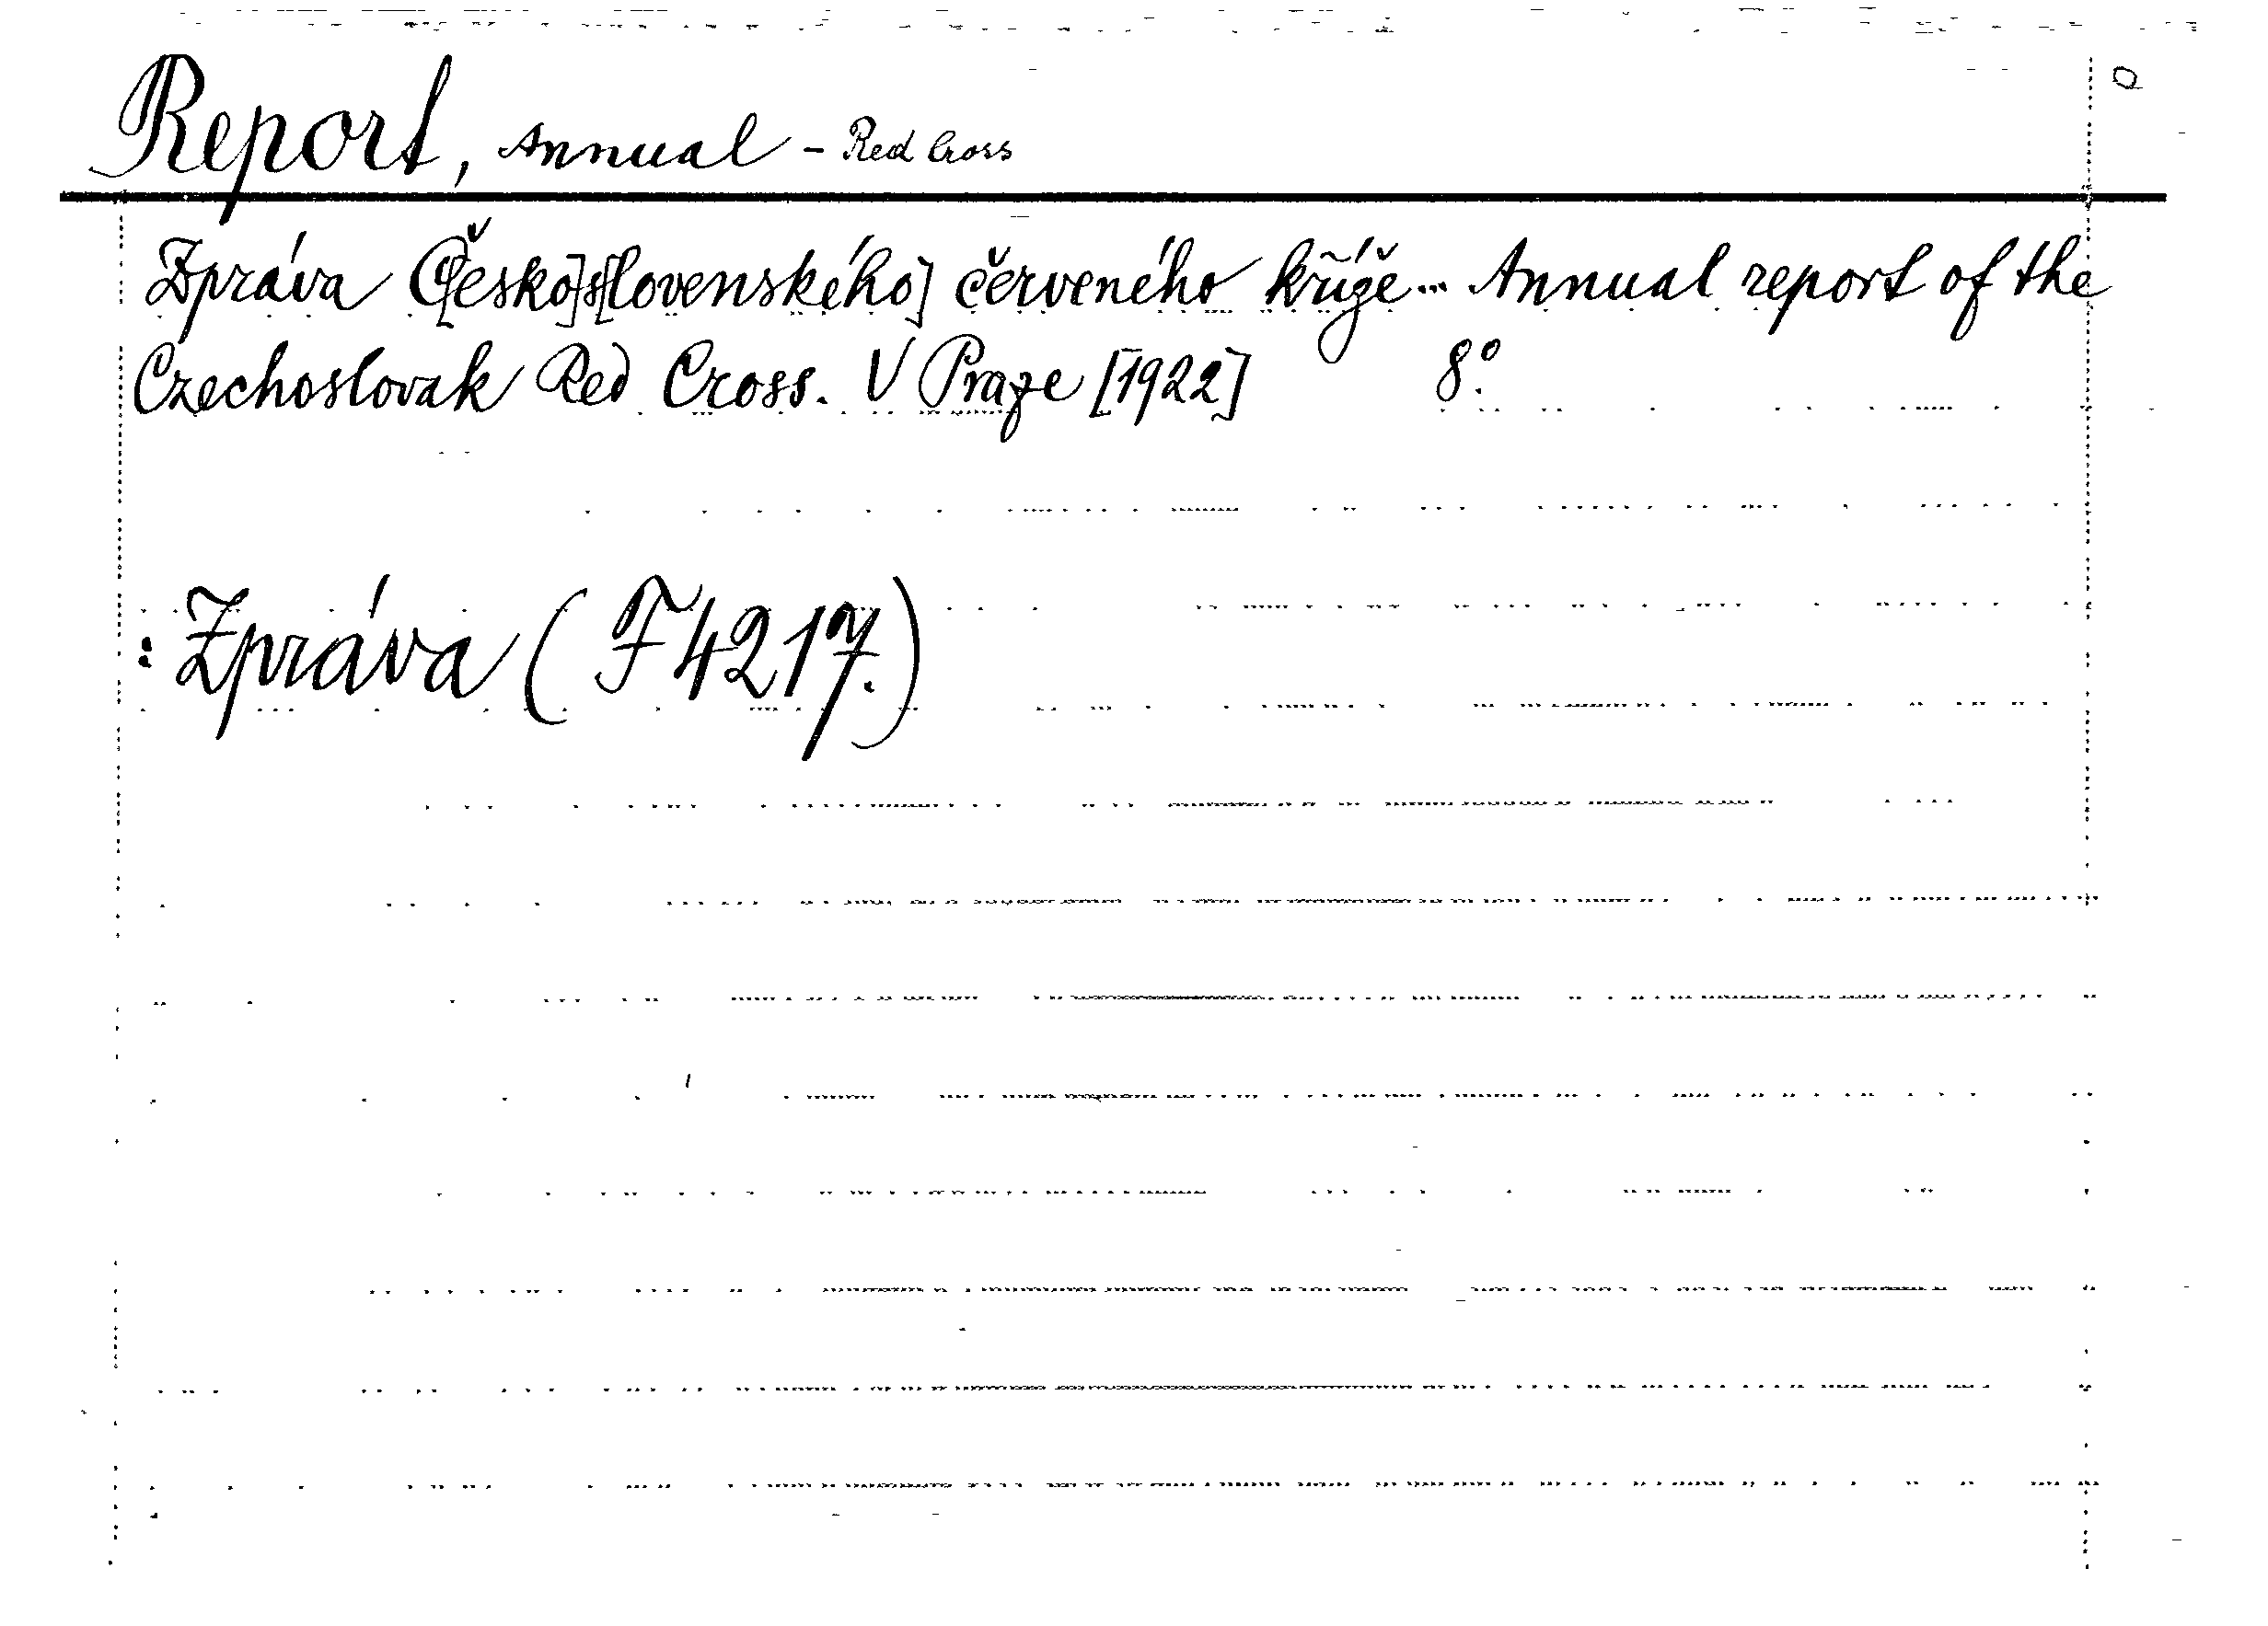 Report, Annual - Red Cross
Zpráva Č[esko]s[lovenského] červeného kříže... Annual report of the
Czechoslovak Red Cross. V Praze [1922] 8°.
: Zpráva (F 4217.)